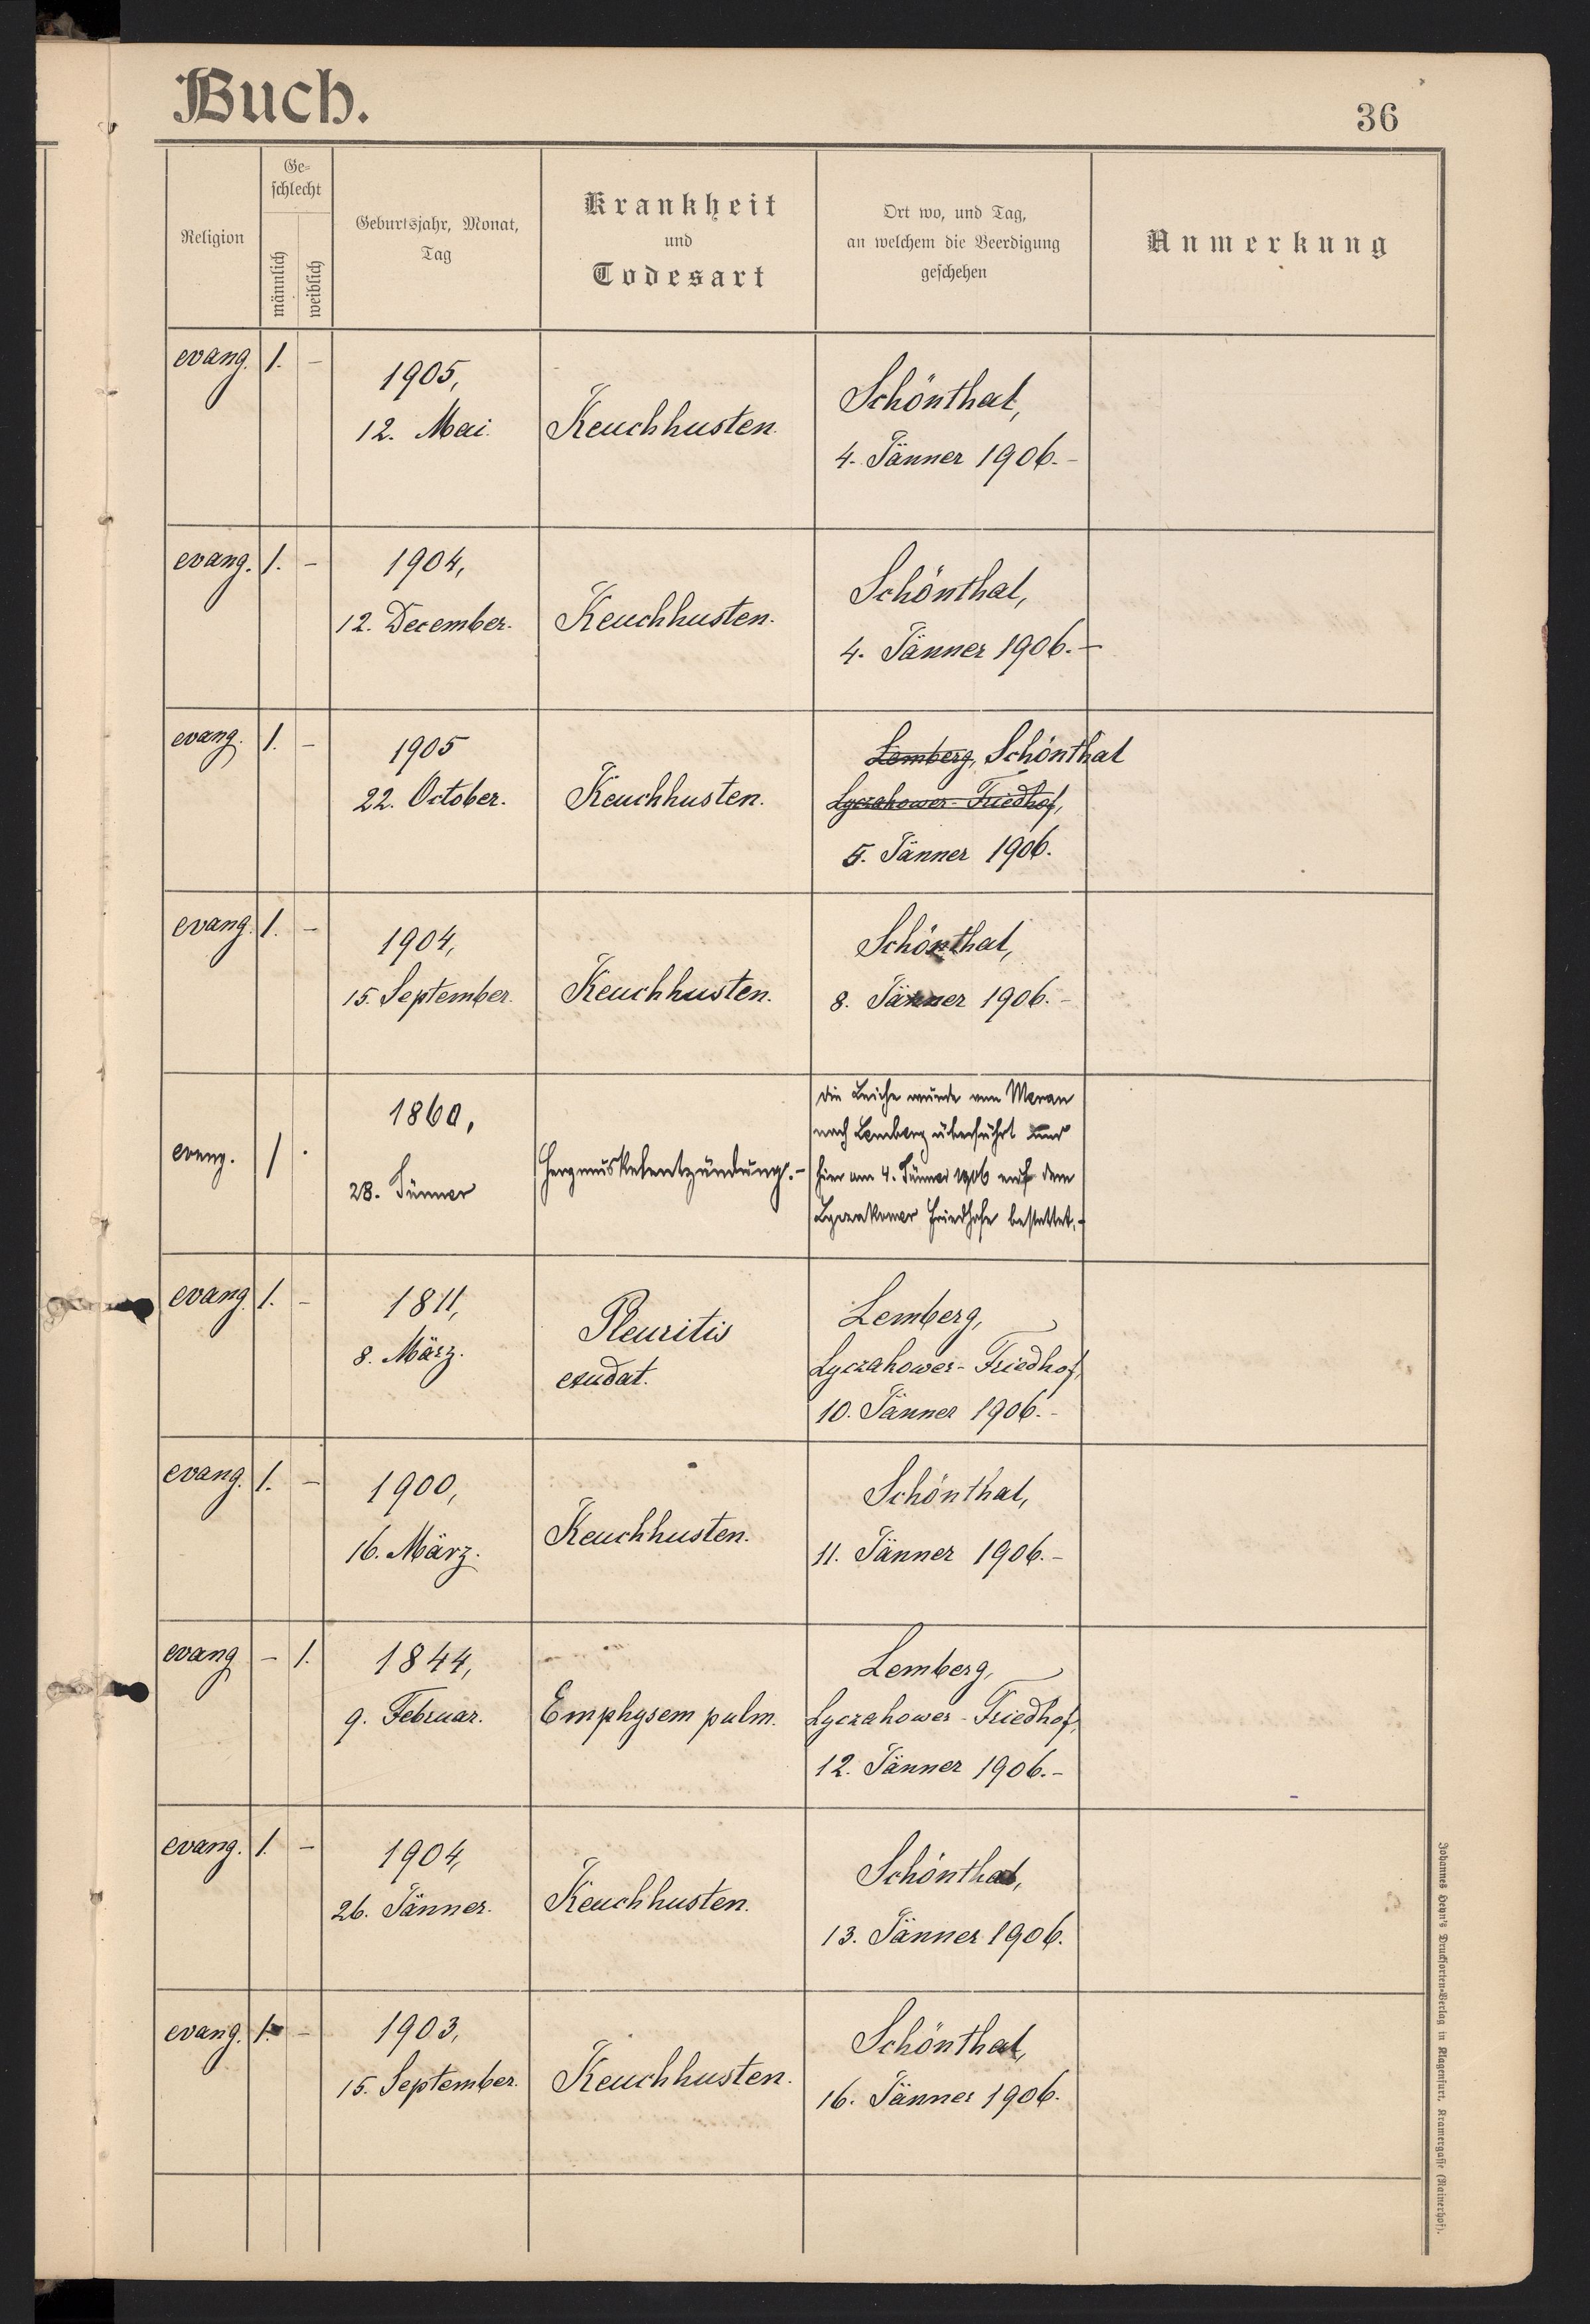 Buch.
36
Religion
Ge-
schlecht
männlich
weiblich
Geburtsjahr, Monat,
Tag
Krankheit
und
Todesart
Ort wo, und Tag,
an welchem die Beerdigung
geschehen
Anmerkung
evang. 1. –
1905,
12. Mai.
Keuchhusten.
Schönthal,
4. Jänner 1906.–
evang. 1. –
1904,
12. December.
Keuchhusten.
Schönthal,
4. Jänner 1906.–
evang. 1. –
1905
22. October.
Keuchhusten.
Lemberg, Schönthal
Lyczakower-Friedhof,
5. Jänner 1906.
evang. 1. –
1904,
15. September.
Keuchhusten.
Schönthal,
8. Jänner 1906.–
evang. 1 .
1860,
28. Jänner
Herzmuskelentzündung.–
Die Leiche wurde von Meran
nach Lemberg überführt und
hier am 4. Jänner 1906 auf dem
Lyczakower Friedhofe bestattet.–
evang. 1. –
1811,
8. März.
Pleuritis
exudat.
Lemberg,
Lyczakower-Friedhof,
10. Jänner 1906.–
evang. 1. –
1900,
16. März.
Keuchhusten.
Schönthal,
11. Jänner 1906.–
evang – 1.
1844,
9. Februar.
Emphysem pulm.
Lemberg,
Lyczakower-Friedhof,
12. Jänner 1906.–
evang. 1. –
1904,
26. Jänner.
Keuchhusten.
Schönthal,
13. Jänner 1906.
evang. 1. –
1903,
15. September.
Keuchhusten.
Schönthal,
16. Jänner 1906.
Johannes Heyn's Drucksorten-Verlag in Klagenfurt, Kramergasse (Rainerhof).